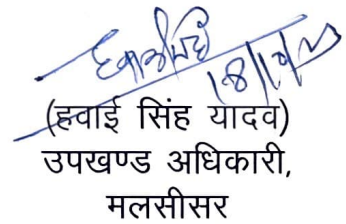 (हवाई सिंह यादव)
उपखण्ड अधिकारी,
मलसीसर